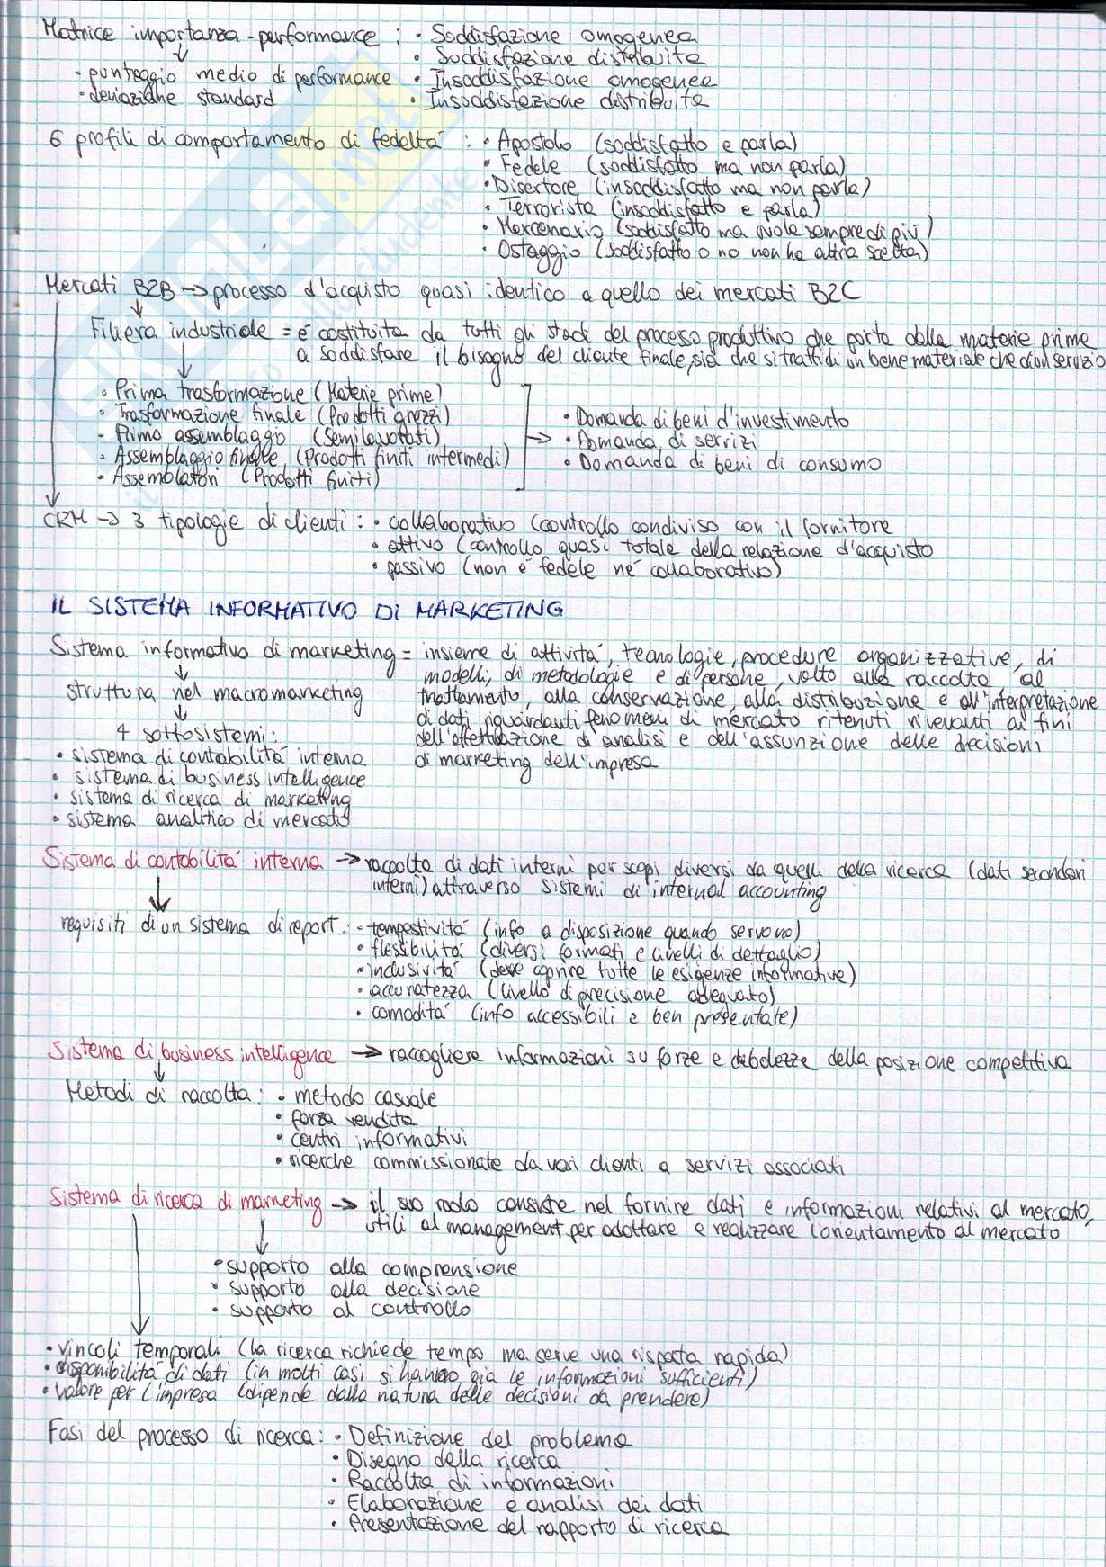 Matrice importanza-performance : • Soddisfazione omogenea
• Soddisfazione distribuita
- punteggio medio di performance • Insoddisfazione omogenea
- deviazione standard • Insoddisfazione distribuita
6 profili di comportamento di fedeltà : • Apostolo (soddisfatto e parla)
• Fedele (soddisfatto ma non parla)
• Disertore (insoddisfatto ma non parla)
• Terrorista (insoddisfatto e parla)
• Mercenario (soddisfatto ma vuole sempre di più)
• Ostaggio (soddisfatto o no non ha altra scelta)
Mercati B2B → processo d'acquisto quasi identico a quello dei mercati B2C
Filiera industriale = è costituita da tutti gli stadi del processo produttivo che porta dalla materie prime
a soddisfare il bisogno del cliente finale, sia che si tratti di un bene materiale che di un servizio
• Prima trasformazione (Materie prime)
• Trasformazione finale (Prodotti grezzi)
• Primo assemblaggio (Semilavorati)
• Assemblaggio finale (Prodotti finiti intermedi)
• Assemblatori (Prodotti finiti)
→ • Domanda di beni d'investimento
• Domanda di servizi
• Domanda di beni di consumo
CRM → 3 tipologie di clienti : • collaborativo (controllo condiviso con il fornitore
• attivo (controllo quasi totale della relazione d'acquisto
• passivo (non è fedele né collaborativo)
IL SISTEMA INFORMATIVO DI MARKETING
Sistema informativo di marketing = insieme di attività, tecnologie, procedure organizzative, di
modelli, di metodologie e di persone, volto alla raccolta al
struttura nel macromarketing trattamento, alla conservazione, alla distribuzione e all'interpretazione
di dati riguardanti fenomeni di mercato ritenuti rilevanti ai fini
4 sottosistemi: dell'effettuazione di analisi e dell'assunzione delle decisioni
• sistema di contabilità interna di marketing dell'impresa
• sistema di business intelligence
• sistema di ricerca di marketing
• sistema analitico di mercato
Sistema di contabilità interna → raccolta di dati interni per scopi diversi da quelli della ricerca (dati secondari
interni) attraverso sistemi di internal accounting
requisiti di un sistema di report: • tempestività (info a disposizione quando servono)
• flessibilità (diversi formati e livelli di dettaglio)
• inclusività (deve coprire tutte le esigenze informative)
• accuratezza (livello di precisione adeguato)
• comodità (info accessibili e ben presentate)
Sistema di business intelligence → raccogliere informazioni su forze e debolezze della posizione competitiva
Metodi di raccolta : • metodo casuale
• forza vendita
• centri informativi
• ricerche commissionate da vari clienti a servizi associati
Sistema di ricerca di marketing → il suo ruolo consiste nel fornire dati e informazioni relativi al mercato,
utili al management per adottare e realizzare l'orientamento al mercato
• supporto alla comprensione
• supporto alla decisione
• supporto al controllo
• vincoli temporali (la ricerca richiede tempo ma serve una risposta rapida)
• disponibilità di dati (in molti casi si hanno già le informazioni sufficienti)
• valore per l'impresa (dipende dalla natura delle decisioni da prendere)
Fasi del processo di ricerca : • Definizione del problema
• Disegno della ricerca
• Raccolta di informazioni
• Elaborazione e analisi dei dati
• Presentazione del rapporto di ricerca